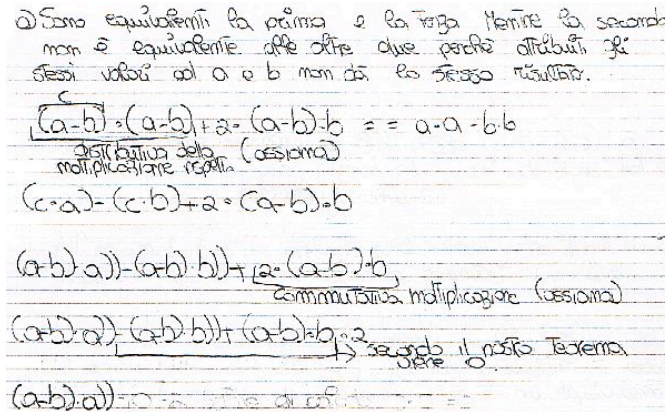 a) Sono equivalenti la prima e la terza mentre la seconda
non è equivalente alle altre due perchè attribuiti gli
stessi valori ad a e b non dà lo stesso risultato.
c
(a-b)·(a-b)+2·(a-b)·b = = a·a-b·b
distributiva della (assioma)
moltiplicazione rispetto
(c·a)-(c·b)+2·(a-b)·b
(a-b)·a))-(a-b)·b))+2·(a-b)·b
commutativa moltiplicazione (assioma)
(a-b)·a))-(a-b)·b))+(a-b)·b·2
→ secondo il nostro teorema
viene 0
(a-b)·a))